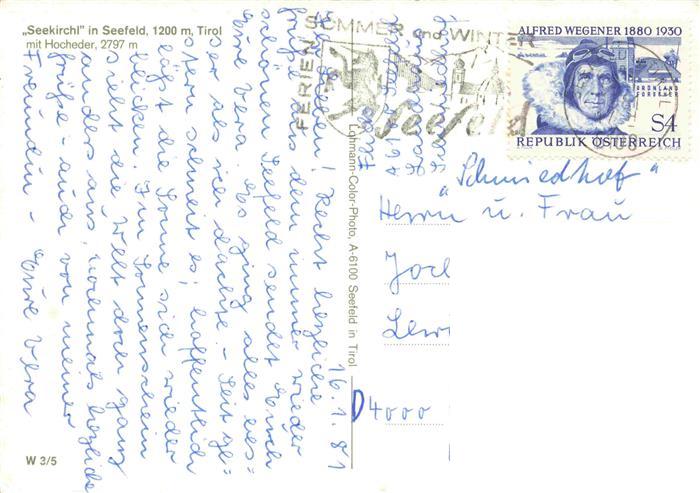 „Seekirchl" in Seefeld, 1200 m, Tirol
mit Hocheder, 2797 m
16.1.81
Ihr Lieben! Recht herzliche
Grüße aus dem immer wieder
schönen Seefeld sendet Euch
Eure Vera. Es ging alles bes-
ser als ich dachte. - Seit ge-
stern schneit es, hoffentlich
läßt die Sonne sich wieder
blicken. Im Sonnenschein
sieht die Welt doch ganz
anders aus, nochmals herzliche
Grüße - auch von meiner
Freundin - Eure Vera
W 3/5
Lohmann-Color-Photo, A-6100 Seefeld in Tirol
FERIEN SOMMER and WINTER
Seefeld
ALFRED WEGENER 1880-1930
GRÖNLAND
FORSCHER
S4
REPUBLIK ÖSTERREICH
"Schmiedhof"
Herrn u. Frau
Joch
Lewi
D4000